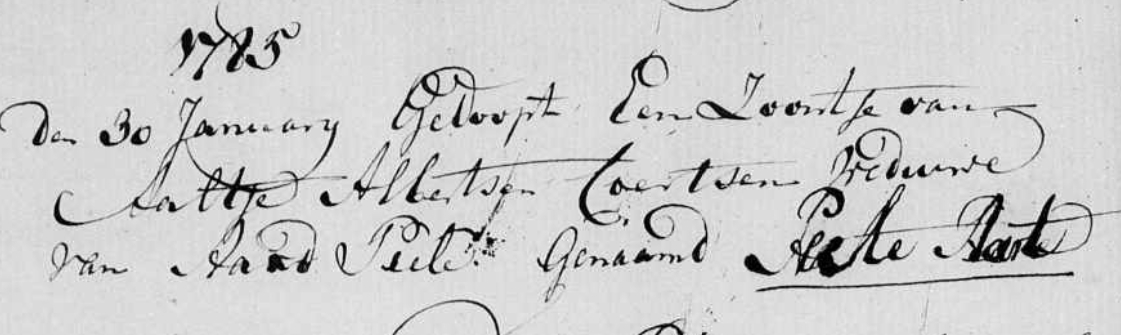 1785
den 30 January Gedoopt Een Zoontje van
Aaltje Albertsen Coertsen Weduwe
van Aard Peele Genaamd Aart